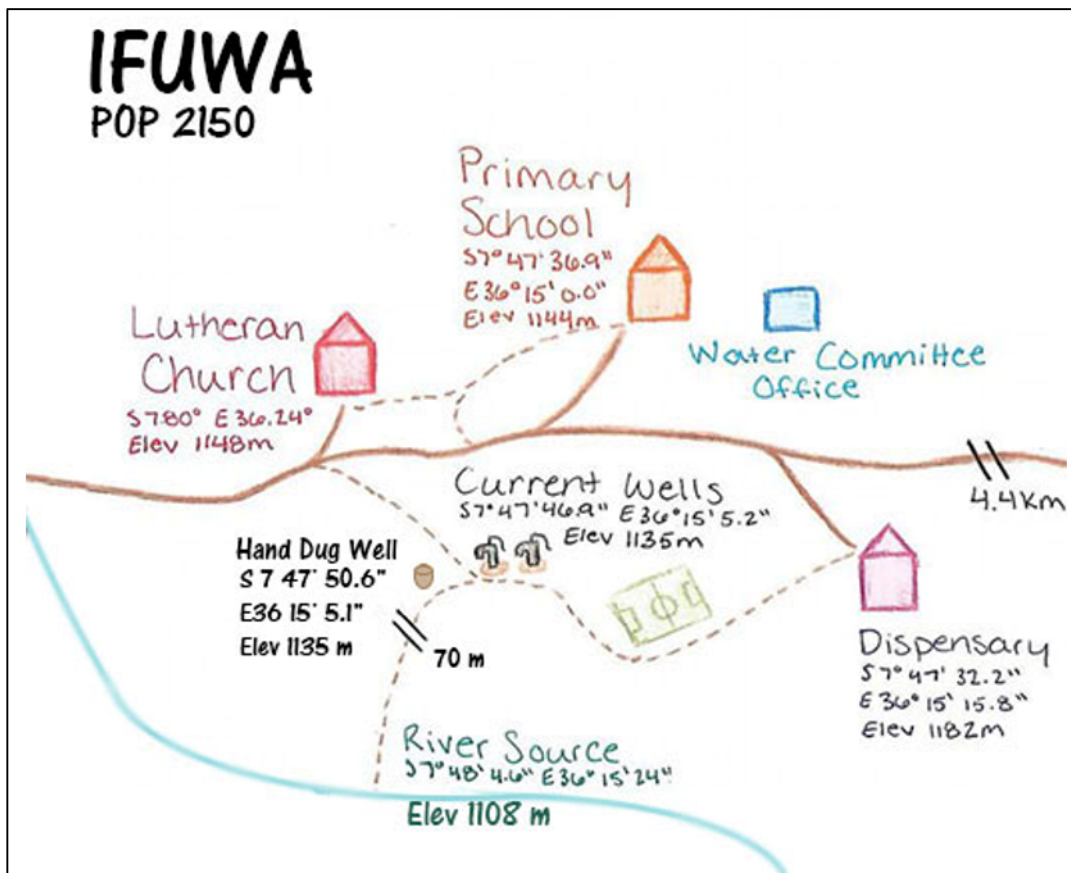 IFUWA
POP 2150
Primary
School
S7° 47' 36.9"
E 36° 15' 0.0"
Elev 1144m
Lutheran
Church
S 7.80° E 36.24°
Elev 1148m
Water Committee
Office
4.4km
Current Wells
S7° 47' 46.9" E 36° 15' 5.2"
Elev 1135m
Hand Dug Well
S 7 47' 50.6"
E36 15' 5.1"
Elev 1135 m
70 m
Dispensary
S7° 47' 32.2"
E 36° 15' 15.8"
Elev 1182m
River Source
S7° 48' 4.6" E 36° 15' 24"
Elev 1108 m